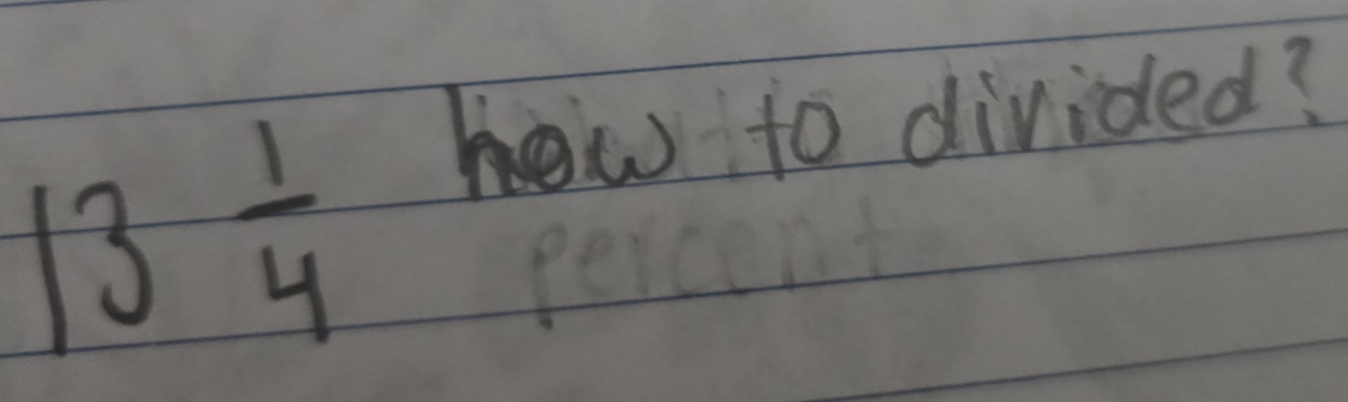 13 1/4 how to divided?
percent